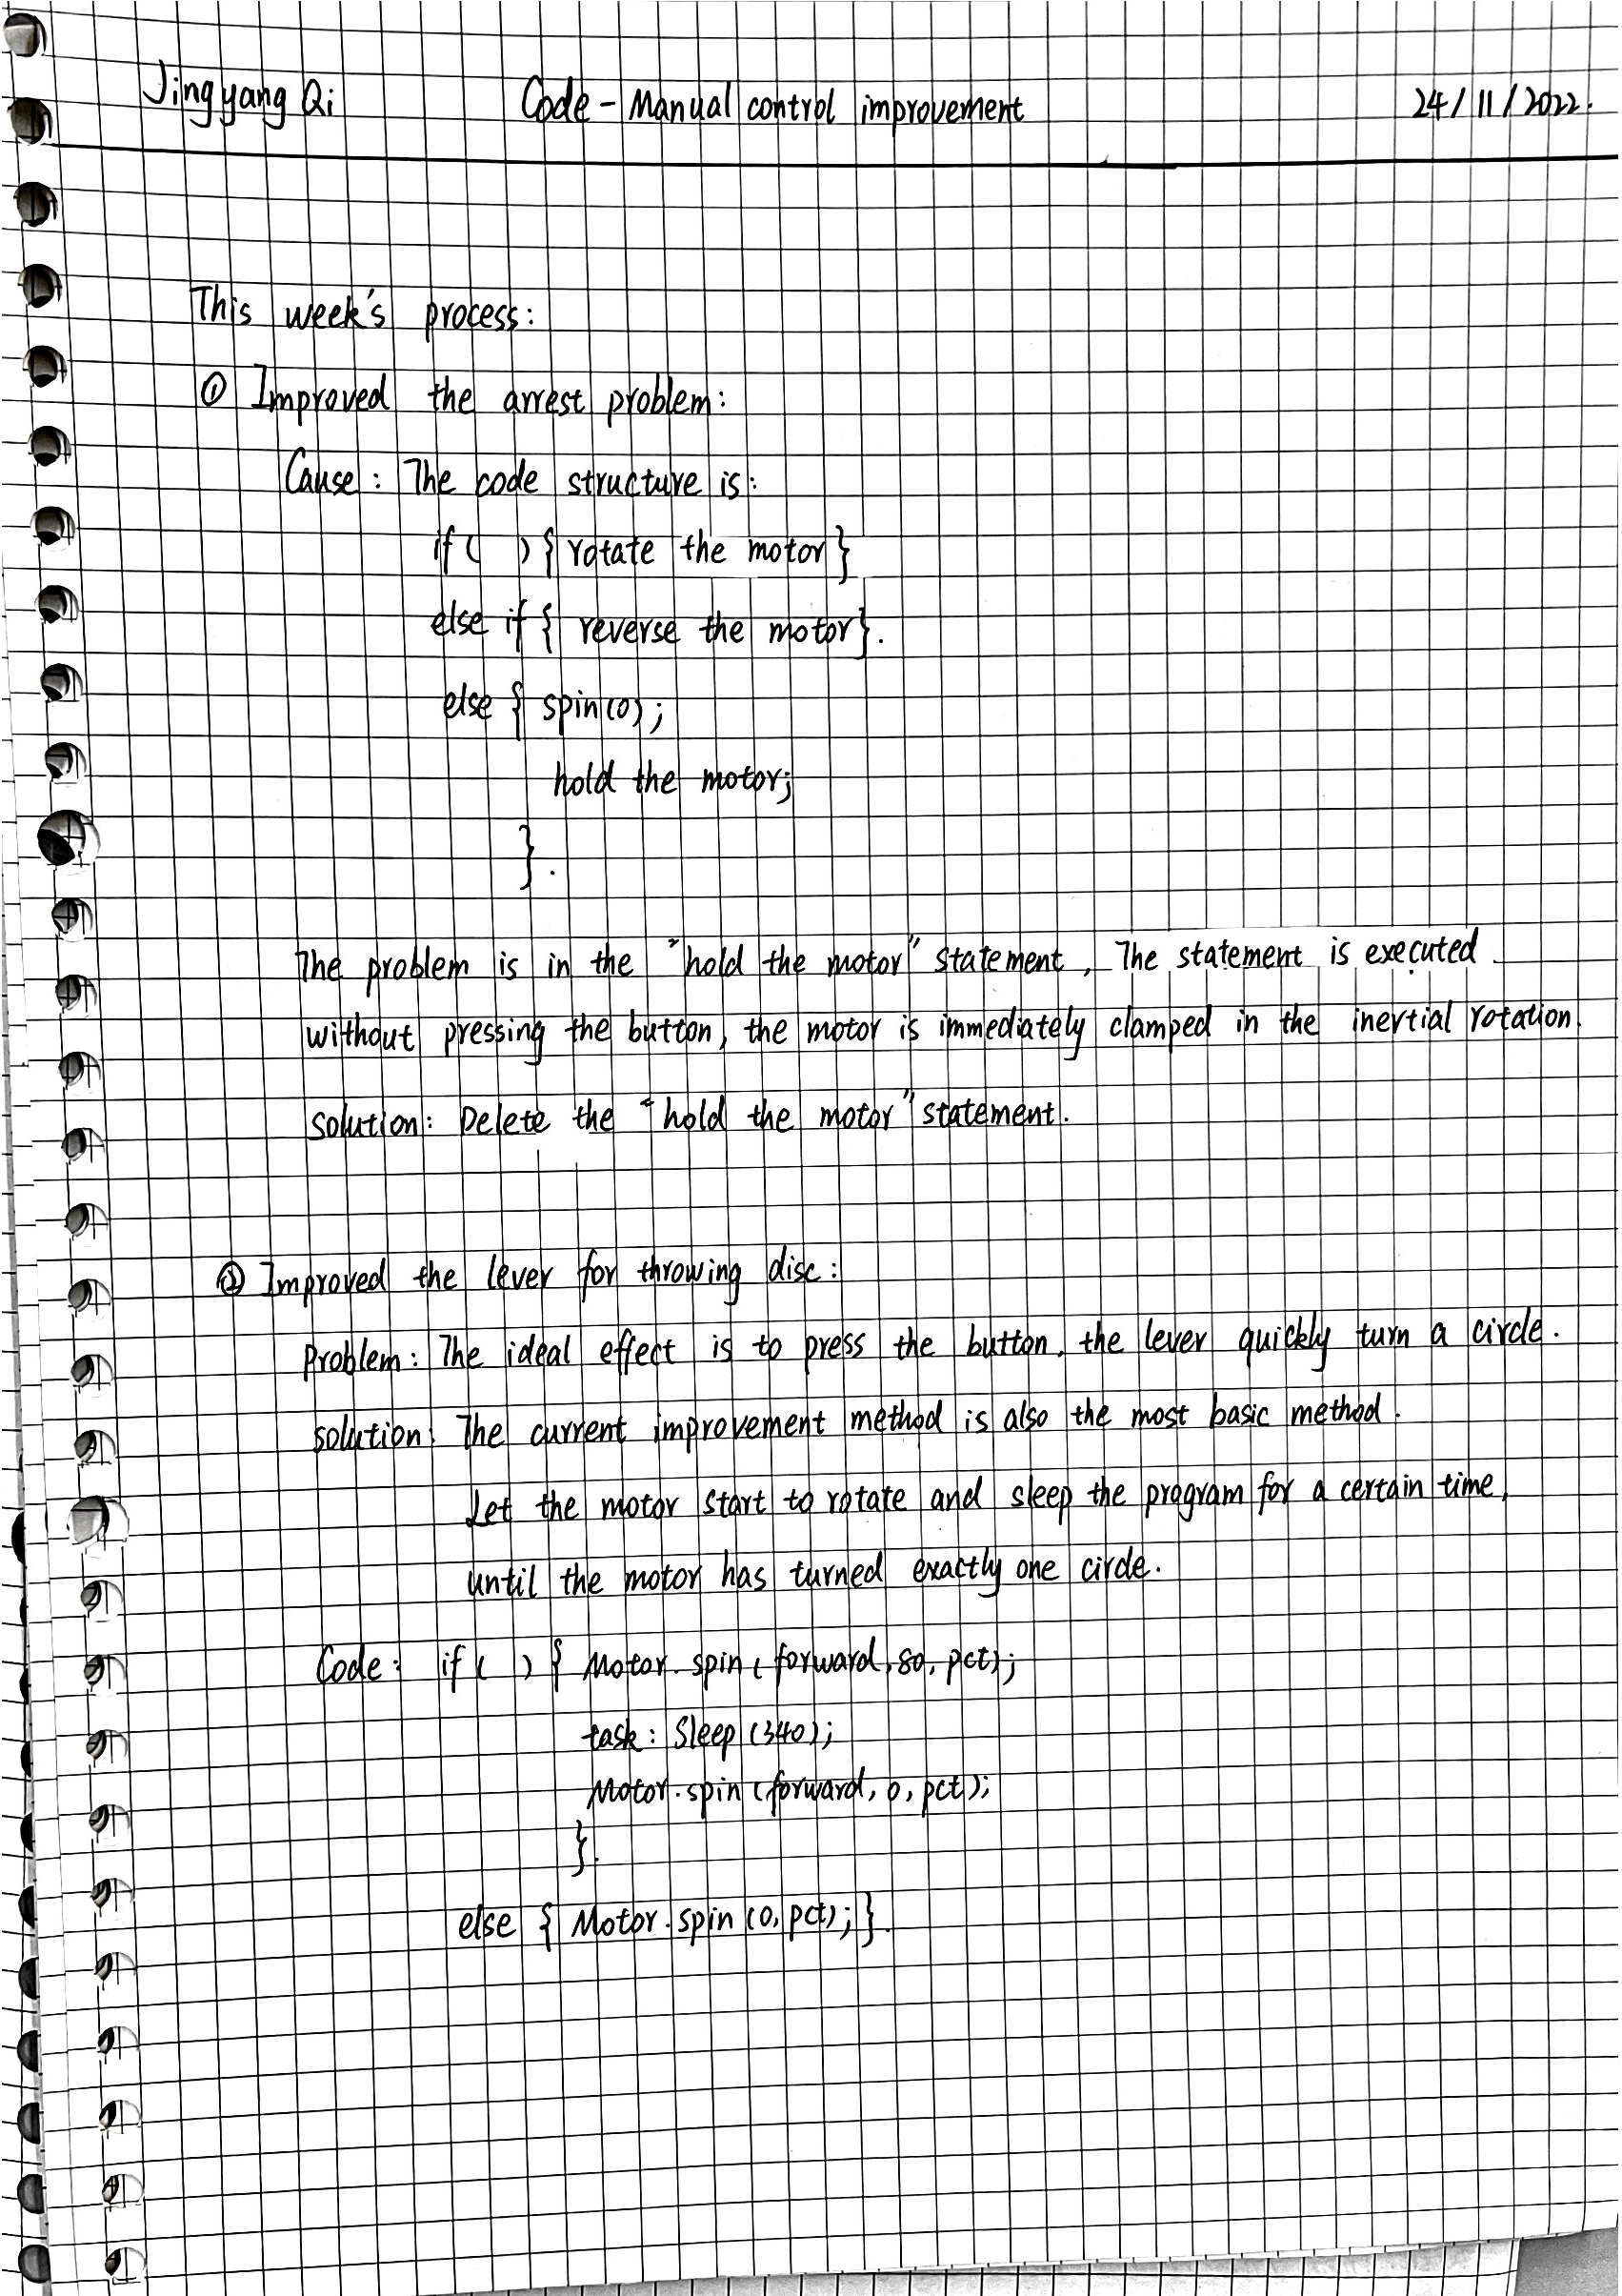 Jingyang Qi Code - Manual control improvement 24/11/2022.
This week's process:
① Improved the arrest problem:
Cause: The code structure is:
if( ) { rotate the motor}
else if { reverse the motor}.
else { spin(0);
hold the motor;
}.
The problem is in the "hold the motor" statement, The statement is executed
without pressing the button, the motor is immediately clamped in the inertial rotation.
solution: Delete the "hold the motor" statement.
② Improved the lever for throwing disc:
Problem: The ideal effect is to press the button, the lever quickly turn a circle.
solution: The current improvement method is also the most basic method.
Let the motor start to rotate and sleep the program for a certain time,
until the motor has turned exactly one circle.
Code: if( ) { Motor.spin(forward, 80, pct);
task: Sleep(340);
Motor.spin(forward, 0, pct);
}.
else { Motor.spin(0, pct); }.